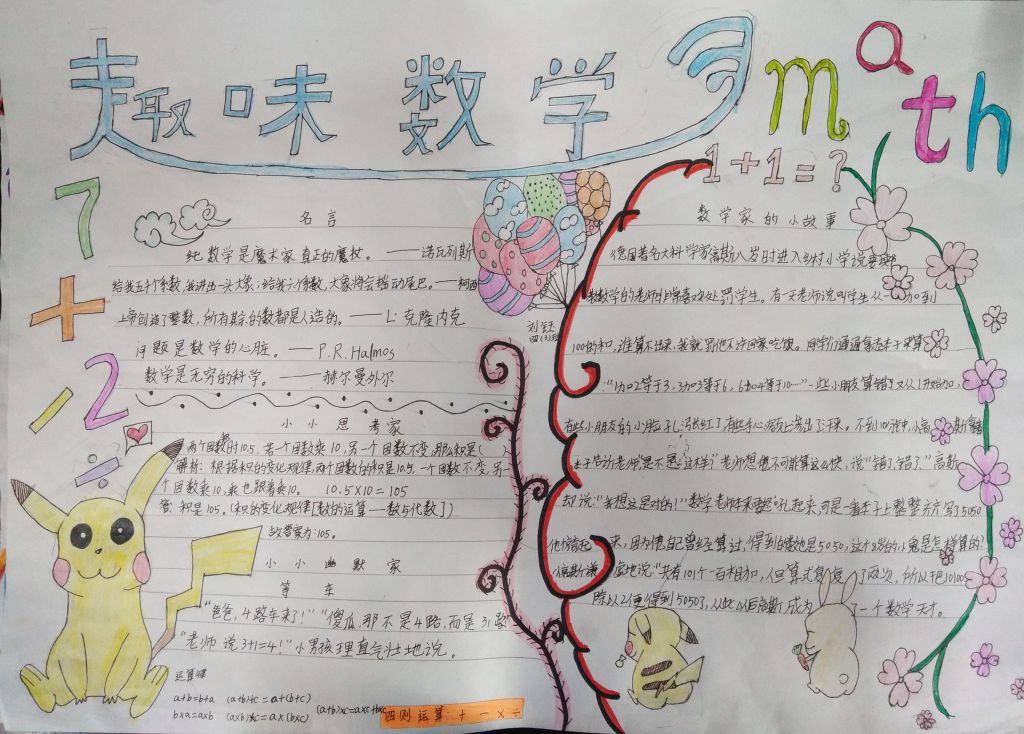 趣味数学
math
7
+
2
-
÷
1+1=?
名言
纯数学是魔术家真正的魔杖。——诺瓦列斯
给我五个系数,我讲出一头大象;给我六个系数,大象将会摇动尾巴。——柯西
上帝创造了整数,所有其余的数都是人造的。——L·克隆内克
问题是数学的心脏。——P.R.Halmos
数学是无穷的科学。——赫尔曼外尔
小小思考家
两个因数的积10.5,若一个因数乘10,另一个因数不变,那么积是( )
解析:根据积的变化规律,两个因数的积是10.5,一个因数不变,另
个因数乘10,乘也跟着乘10。 10.5×10=105
答:积是105。(积的变化规律[数的运算—数与代数])
故答案为:105。
小小幽默家
等车
“爸爸,4路车来了!”“傻瓜,那不是4路,而是31路”
“老师说3+1=4!”小男孩理直气壮地说。
运算律
a+b=b+a (a+b)+c=a+(b+c)
b×a=a×b (a×b)×c=a×(b×c)
(a+b)×c=a×c+b×c
四则运算:+ - × ÷
四(3)班
数学家的小故事
德国著名大科学家高斯八岁时进入乡村小学读书
教数学的老师
处罚学生。有一天老师说叫学生从一加到
100的和,谁算不出来,我就罚他不许回家吃饭。同学们通通拿起本子来算
:“1加2等于3,3加3等于6,6加4等于10……”一些小朋友算错了又从1开始加,
有些小朋友的小脸孔涨红了,有些手心
出了汗来。不到10分钟,小高斯拿着
本子告诉老师“是不是这样?”老师想他不可能算这么快,说“错了,错了。”高斯
却说:“我想这是对的!”数学老师本来想怒吼起来,可是一看本子上整整齐齐写了5050
他惊奇起来,因为他自己曾经算过,得到的数也是5050,这个8岁的小鬼是怎样算的?
小高斯谦虚地说:“共有101个一百相加,但算式重复了两次,所以把10100
除以2便得到5050”,从此以后高斯成为了一个数学天才。